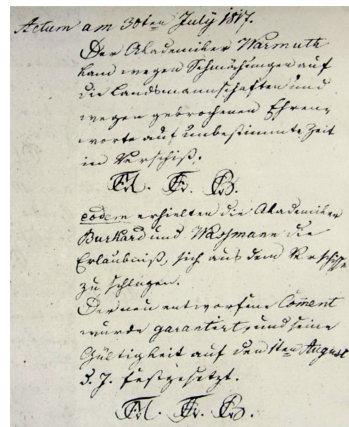 Actum am 30ten July 1817.
Der Akademiker Warmuth
kam wegen Schmähungen auf
die Landsmannschaften und
wegen gebrochenen Ehren-
worts auf unbestimmte Zeit
in Verschiß.
eodem erhielten die Akademiker
Burkard und Waßmann die
Erlaubniß, sich aus dem Verschisse
zu schlagen.
Der neu entworfene Coment
wurde garantirt, und seine
Gültigkeit auf den 1ten August
d. J. festgesetzt.